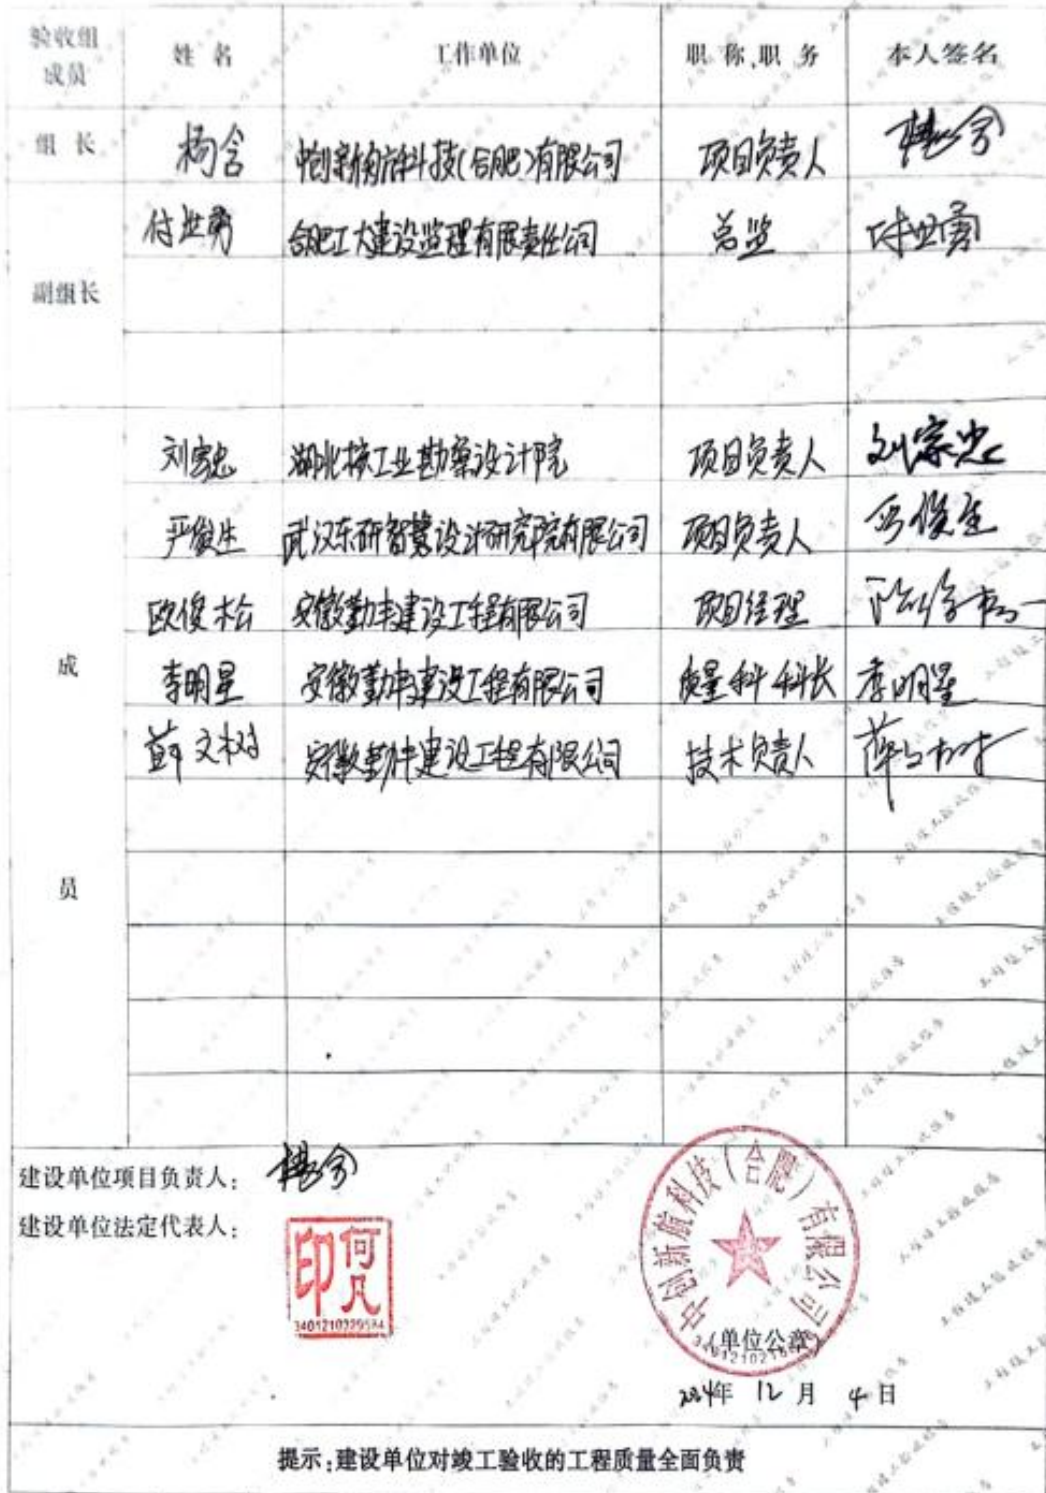 验收组成员 姓 名 工作单位 职称、职务 本人签名
组 长 杨含 中创新航科技(合肥)有限公司 项目负责人 杨含
付世勇 合肥工大建设监理有限责任公司 总监 付世勇
副组长
刘宗忠 湖北核工业勘察设计院 项目负责人 刘宗忠
严俊生 武汉东研智慧设计研究院有限公司 项目负责人 严俊生
欧俊松 安徽勤丰建设工程有限公司 项目经理
成 李明星 安徽勤丰建设工程有限公司 质量科科长 李明星
薛文树 安徽勤丰建设工程有限公司 技术负责人 薛文树
员
建设单位项目负责人: 杨含
建设单位法定代表人:
何凡印
中创新航科技(合肥)有限公司
(单位公章)
2024年 12 月 4 日
提示:建设单位对竣工验收的工程质量全面负责